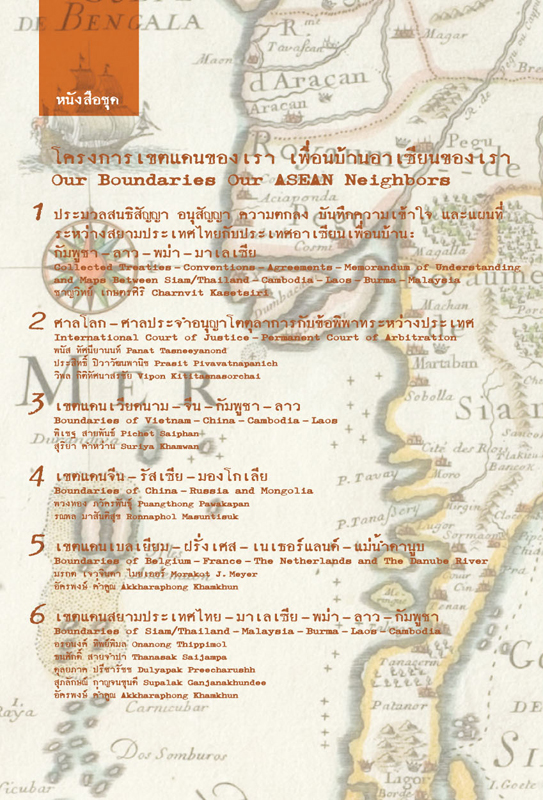 DE BENGALA
หนังสือชุด
Maon
R.
Tavascan
Magar
d'Aracan
Aracan
Pegu
โครงการเขตแดนของเรา เพื่อนบ้านอาเซียนของเรา
Our Boundaries Our ASEAN Neighbors
1 ประมวลสนธิสัญญา อนุสัญญา ความตกลง บันทึกความเข้าใจ และแผนที่
ระหว่างสยามประเทศไทยกับประเทศอาเซียนเพื่อนบ้าน:
กัมพูชา-ลาว-พม่า-มาเลเซีย
Collected Treaties-Conventions-Agreements-Memorandum of Understanding
and Maps Between Siam/Thailand-Cambodia-Laos-Burma-Malaysia
ชาญวิทย์ เกษตรศิริ Charnvit Kasetsiri
2 ศาลโลก-ศาลประจำอนุญาโตตุลาการกับข้อพิพาทระหว่างประเทศ
International Court of Justice-Permanent Court of Arbitration
พนัส ทัศนียานนท์ Panat Tasneeyanond
ประสิทธิ์ ปิวาวัฒนพานิช Prasit Pivavatnapanich
วิพล กิติทัศนาสรชัย Vipon Kititasnasorchai
3 เขตแดนเวียดนาม-จีน-กัมพูชา-ลาว
Boundaries of Vietnam-China-Cambodia-Laos
พิเชฐ สายพันธ์ Pichet Saiphan
สุริยา คำหว่าน Suriya Khamwan
4 เขตแดนจีน-รัสเซีย-มองโกเลีย
Boundaries of China-Russia and Mongolia
พวงทอง ภวัครพันธุ์ Puangthong Pawakapan
รณพล มาสันติสุข Ronnaphol Masuntisuk
5 เขตแดนเบลเยียม-ฝรั่งเศส-เนเธอร์แลนด์-แม่น้ำดานูบ
Boundaries of Belgium-France-The Netherlands and The Danube River
มรกต เจวจินดา ไมยเออร์ Morakot J. Meyer
อัครพงษ์ ค่ำคูณ Akkharaphong Khamkhun
6 เขตแดนสยามประเทศไทย-มาเลเซีย-พม่า-ลาว-กัมพูชา
Boundaries of Siam/Thailand-Malaysia-Burma-Laos-Cambodia
อรอนงค์ ทิพย์พิมล Onanong Thippimol
ธนศักดิ์ สายจำปา Thanasak Saijampa
ดุลยภาค ปรีชารัชช Dulyapak Preecharushh
สุภลักษณ์ กาญจนขุนดี Supalak Ganjanakhundee
อัครพงษ์ ค่ำคูณ Akkharaphong Khamkhun
Cosmi
Magalla
Machan
Martaban
Sobolla
MER
Siam
Cité des Rois
P. Tavay
P. Tanaserj
Lugor
Tanaserm
Carnicubar
Patanor
Dos Somburos
Ligor
Borde